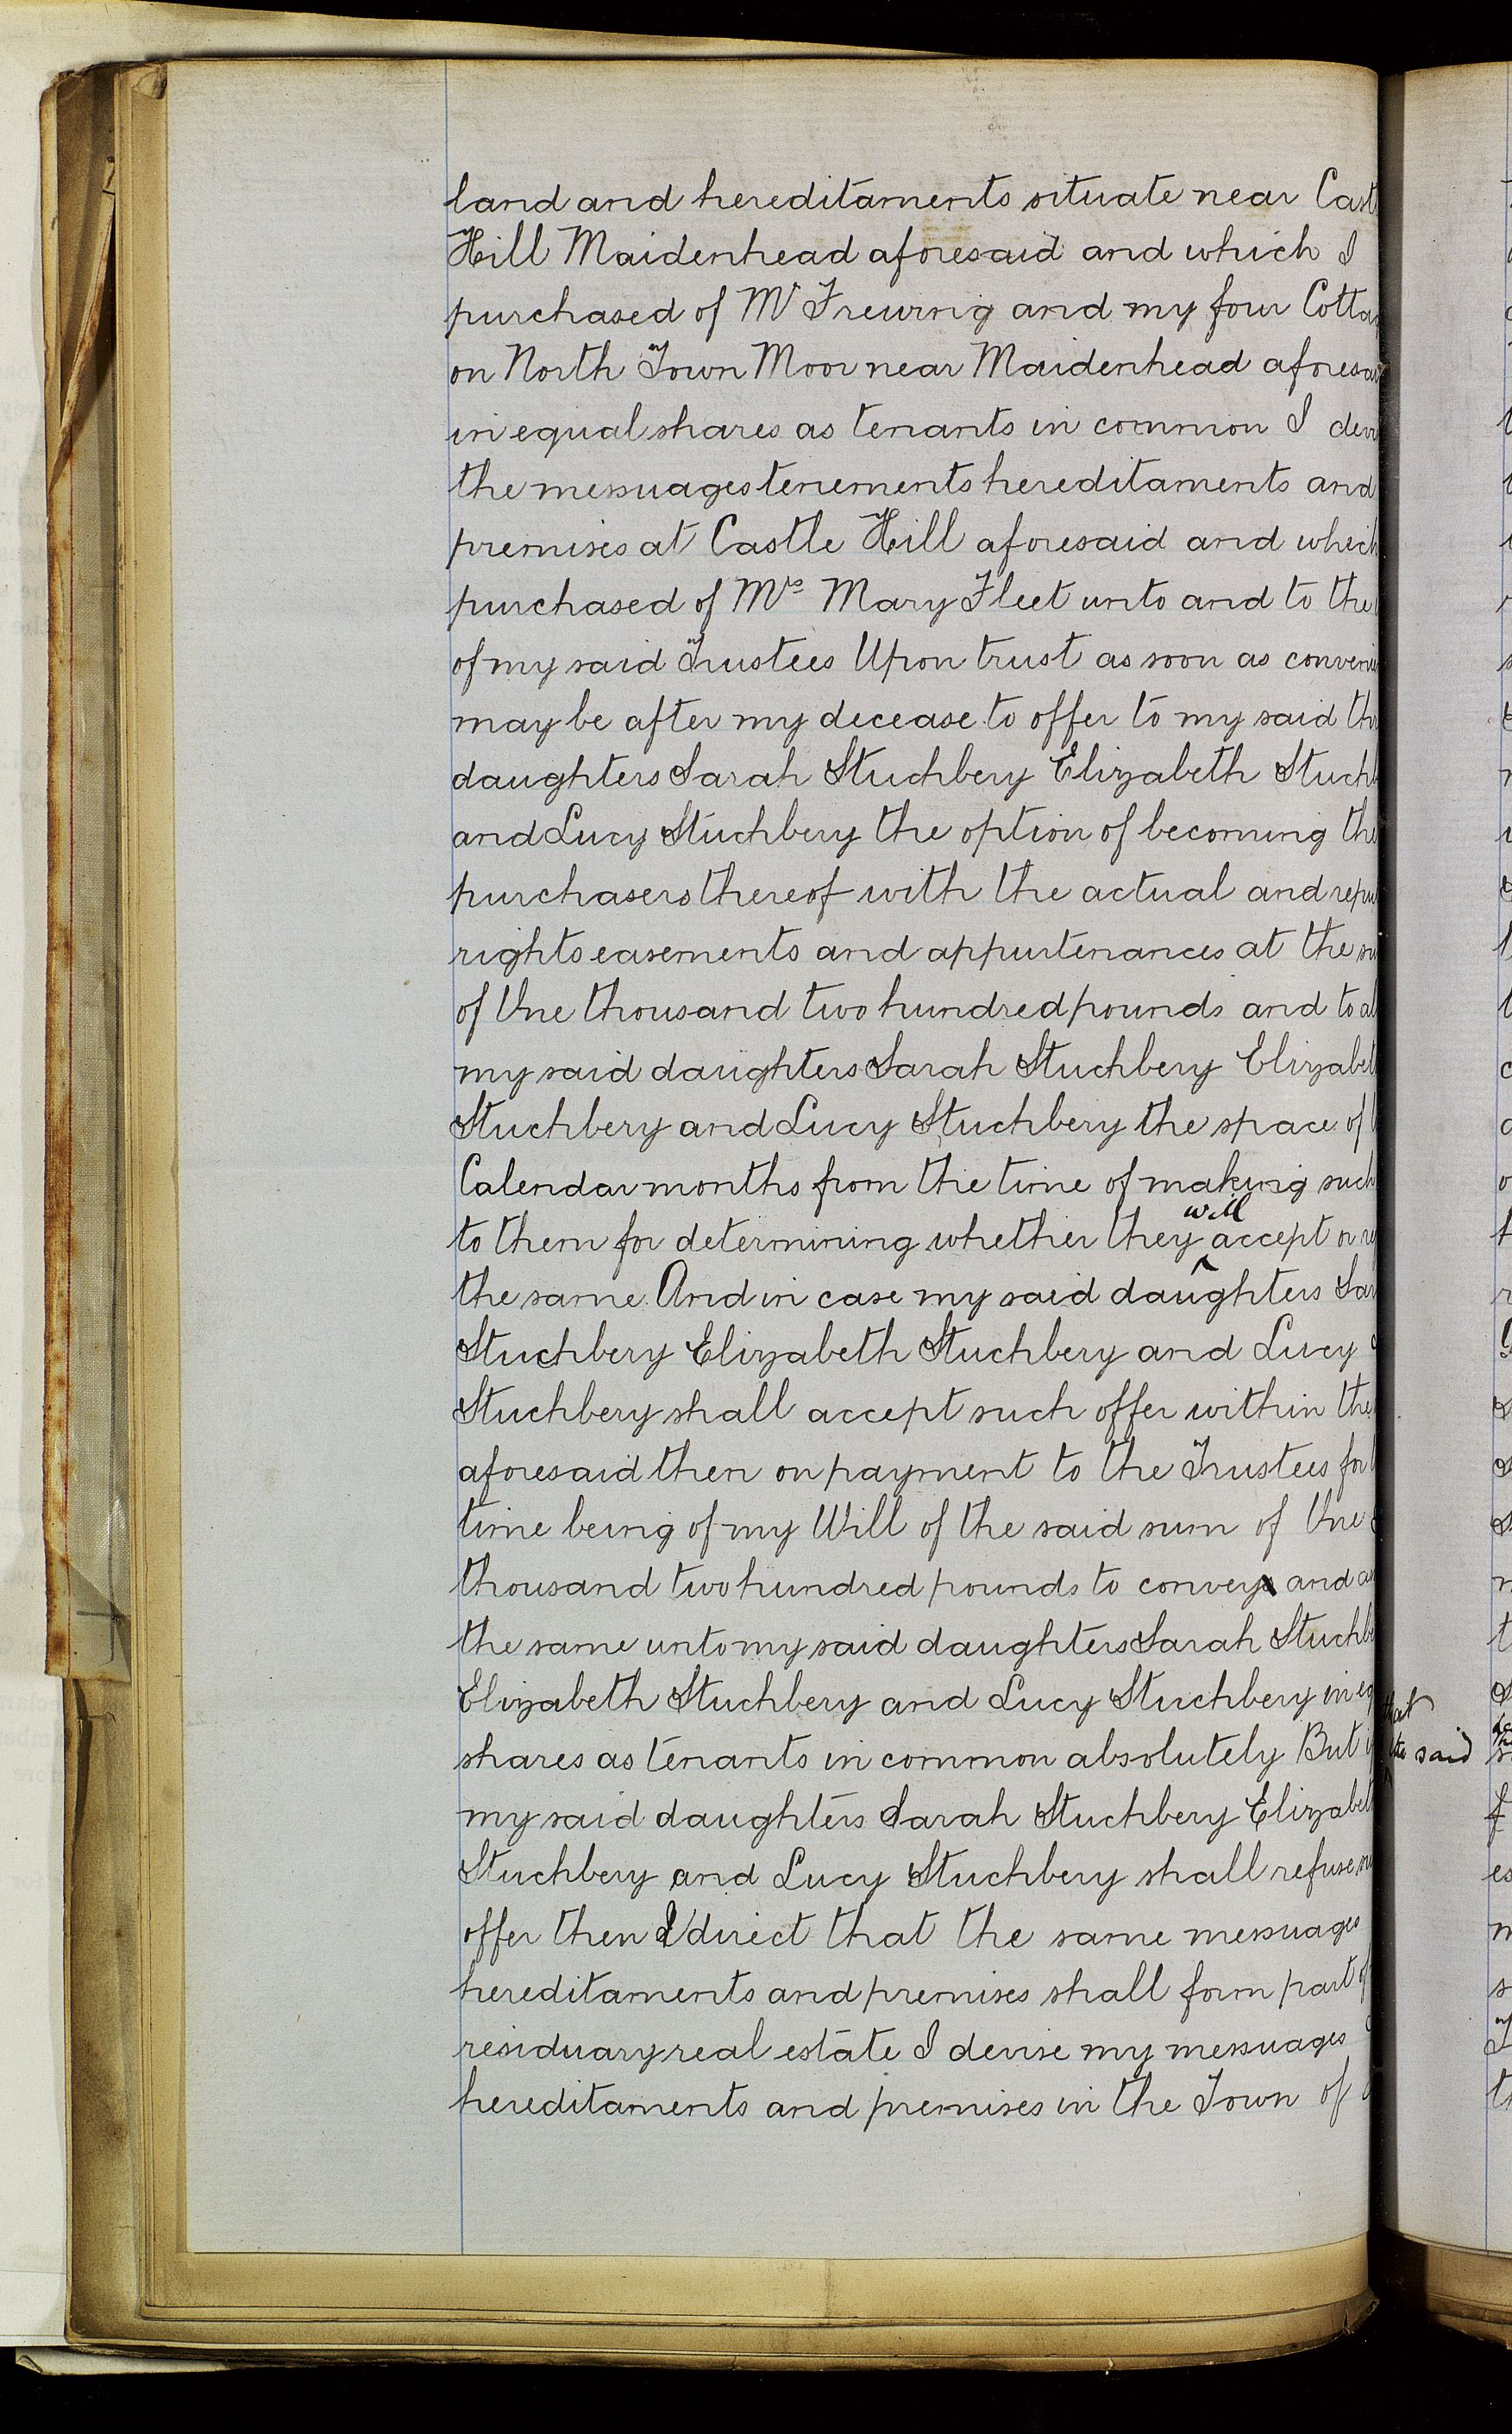 land and hereditaments situate near Cast
Hill Maidenhead aforesaid and which I
purchased of Mr Frewing and my four Cotta
on North Town Moor near Maidenhead aforesa
in equal shares as tenants in common I devi
the messuages tenements hereditaments and
premises at Castle Hill aforesaid and which
purchased of Mrs Mary Fleet unto and to the
of my said Trustees Upon trust as soon as conveni
may be after my decease to offer to my said thr
daughters Sarah Stuchbery Elizabeth Stuchb
and Lucy Stuchbery the option of becoming the
purchasers thereof with the actual and repu
rights easements and appurtenances at the su
of One thousand two hundred pounds and to al
my said daughters Sarah Stuchbery Elizabet
Stuchbery and Lucy Stuchbery the space of
Calendar months from the time of making such
will
to them for determining whether they accept or re
the same And in case my said daughters Sar
Stuchbery Elizabeth Stuchbery and Lucy
Stuchbery shall accept such offer within the
aforesaid then on payment to the Trustees for
time being of my Will of the said sum of One
thousand two hundred pounds to convey and as
the same unto my said daughters Sarah Stuchbe
Elizabeth Stuchbery and Lucy Stuchbery in eq
that
shares as tenants in common absolutely But i
the said
my said daughters Sarah Stuchbery Elizabeth
Stuchbery and Lucy Stuchbery shall refuse su
offer then I direct that the same messuages
hereditaments and premises shall form part of
residuary real estate I devise my messuages
hereditaments and premises in the Town of